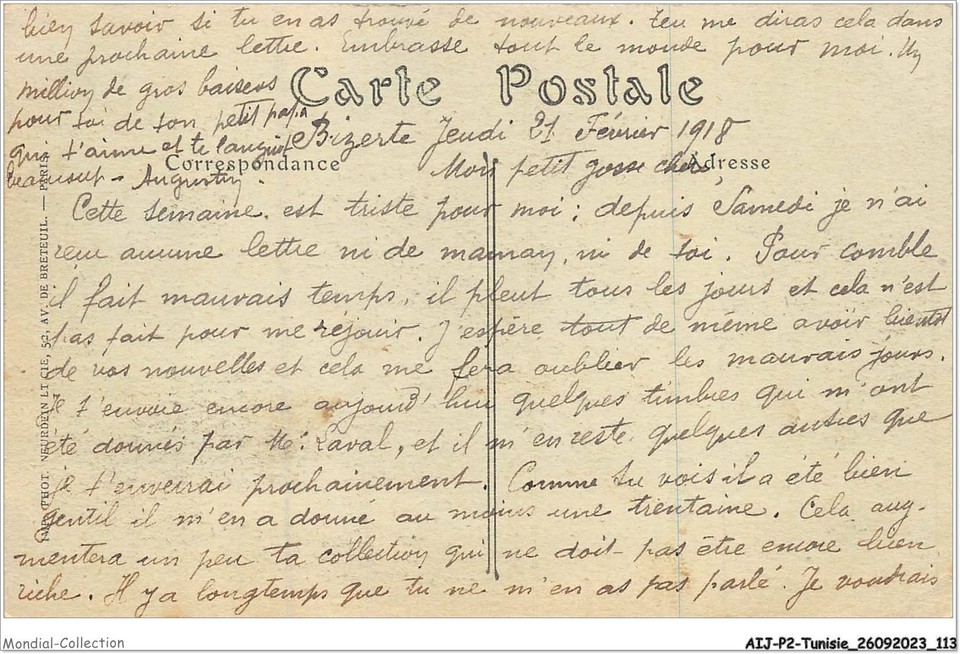 bien savoir si tu en as trouvé de nouveaux. Tu me diras cela dans
une prochaine lettre. Embrasse tout le monde pour moi. Un
million de gros baisers
pour toi de ton petit papa
qui t'aime et te languit
beaucoup - Augustin.
Carte Postale
Correspondance
Adresse
Bizerte Jeudi 21 Février 1918
Mon petit gosse chéri,
Cette semaine est triste pour moi ; depuis Samedi je n'ai
reçu aucune lettre ni de maman, ni de toi. Pour comble
il fait mauvais temps, il pleut tous les jours et cela n'est
pas fait pour me réjouir. J'espère tout de même avoir bientôt
de vos nouvelles et cela me fera oublier les mauvais jours.
Je t'envoie encore aujourd'hui quelques timbres qui m'ont
été donnés par Mr Laval, et il m'en reste quelques autres que
je t'enverrai prochainement. Comme tu vois il a été bien
gentil il m'en a donné au moins une trentaine. Cela aug-
mentera un peu ta collection qui ne doit pas être encore bien
riche. Il y a longtemps que tu ne m'en as pas parlé. Je voudrais
IMP. PHOT. NEURDEIN ET CIE, 52, AV. DE BRETEUIL. — PARIS
Mondial-Collection
AIJ-P2-Tunisie_26092023_113